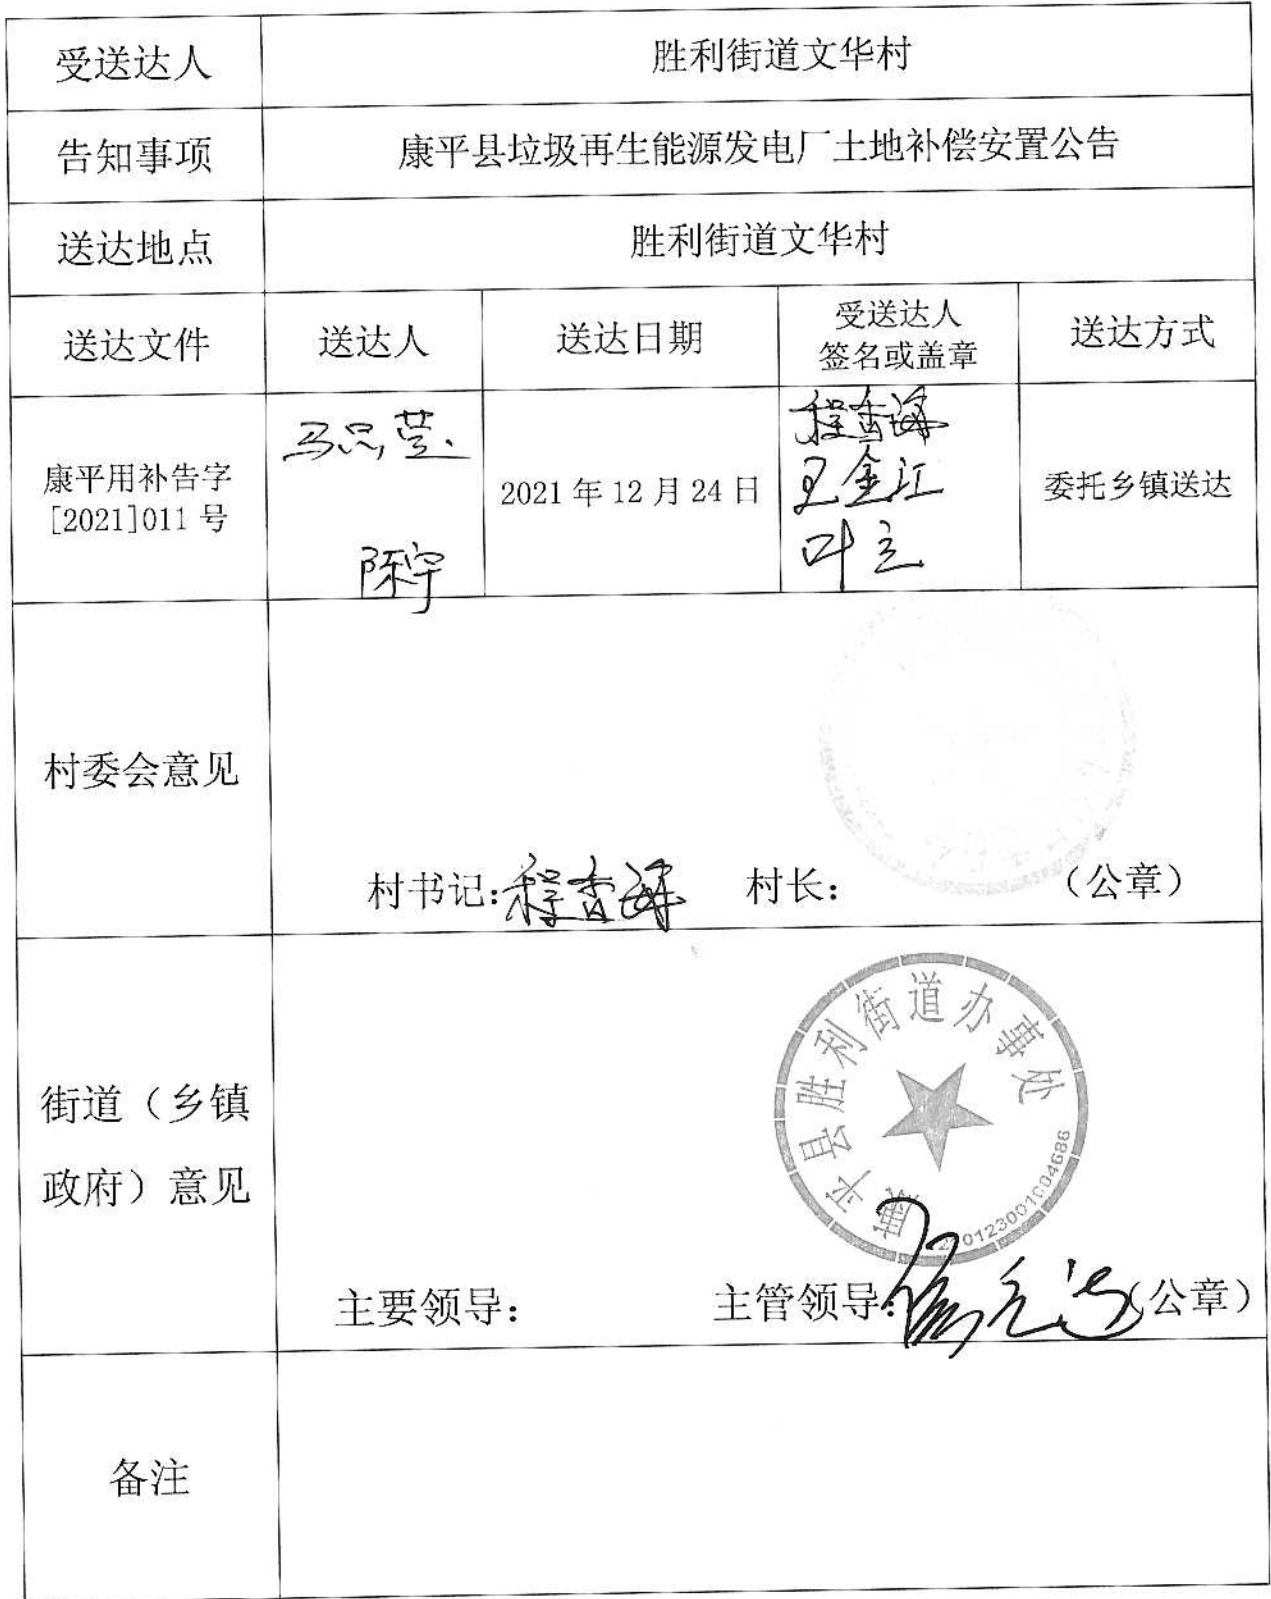 受送达人
胜利街道文华村
告知事项
康平县垃圾再生能源发电厂土地补偿安置公告
送达地点
胜利街道文华村
送达文件
送达人
送达日期
受送达人
签名或盖章
送达方式
康平用补告字
[2021]011 号
马品莹
陈宇
2021 年 12 月 24 日
王金江
叶立
委托乡镇送达
村委会意见
村书记:
村长:
（公章）
街道（乡镇
政府）意见
康平县胜利街道办事处
主要领导:
主管领导:
（公章）
备注